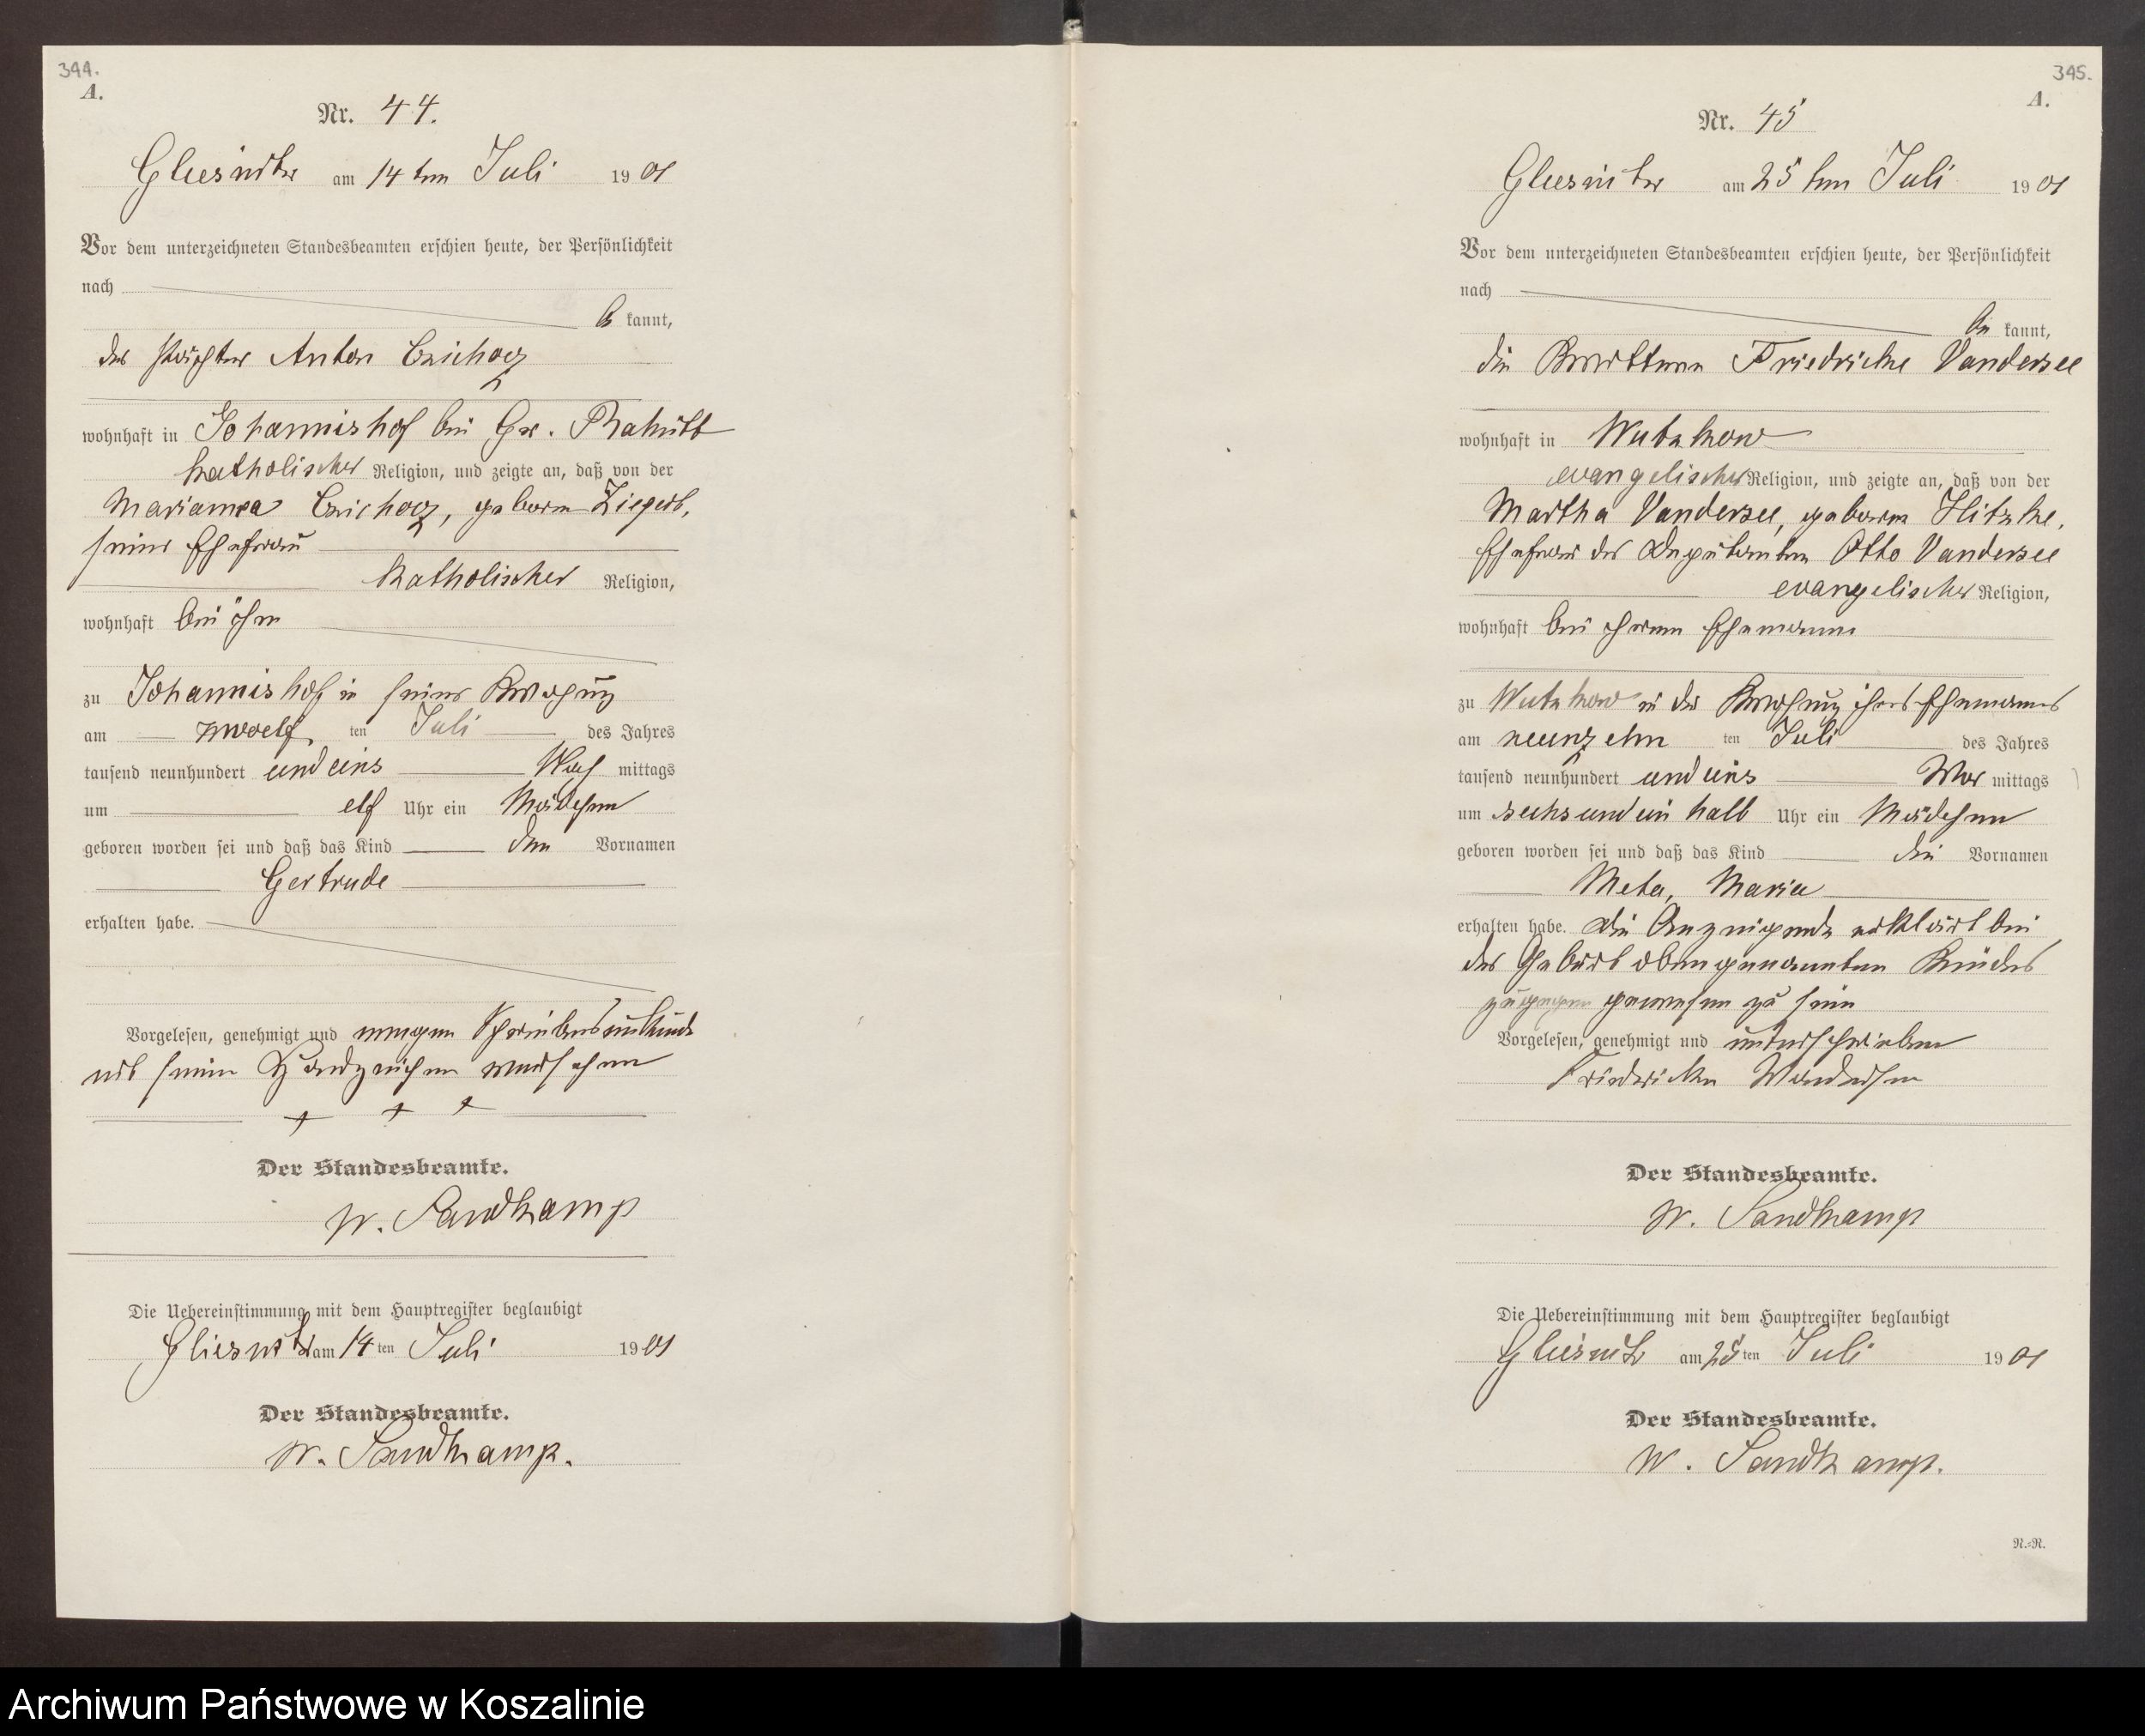 344.
A.
Nr. 44.
Gliesnitz am 14 ten Juli 1901
Vor dem unterzeichneten Standesbeamten erschien heute, der Persönlichkeit
nach
be kannt,
der Pächter Anton
wohnhaft in Johannishof bei Gr. Rakitt
katholischer Religion, und zeigte an, daß von der
Marianna geboren
seiner Ehefrau
katholischer Religion,
wohnhaft bei ihm
zu Johannishof in seiner Wohnung
am zwoelf ten Juli des Jahres
tausend neunhundert und eins Nach mittags
um elf Uhr ein Mädchen
geboren worden sei und daß das Kind den Vornamen
Gertrude
erhalten habe.
Vorgelesen, genehmigt und wegen Schreibensunkunde
mit seinem Handzeichen versehen
+ + +
Der Standesbeamte.
W. Sandkamp
Die Uebereinstimmung mit dem Hauptregister beglaubigt
Gliesnitz am 14 ten Juli 1901
Der Standesbeamte.
W. Sandkamp.
345.
A.
Nr. 45
Gliesnitz am 25 ten Juli 1901
Vor dem unterzeichneten Standesbeamten erschien heute, der Persönlichkeit
nach
be kannt,
die Friedricke Vandersee
wohnhaft in Wutzkow
evangelischer Religion, und zeigte an, daß von der
Martha Vandersee, geboren Hitzke,
Ehefrau des Deputanten Otto Vandersee
evangelischer Religion,
wohnhaft bei ihrem Ehemanne
zu Wutzkow in der Wohnung ihres Ehemannes
am neunzehn ten Juli des Jahres
tausend neunhundert und eins Vor mittags
um sechs und ein halb Uhr ein Mädchen
geboren worden sei und daß das Kind die Vornamen
Meta, Maria
erhalten habe. Die Anzeigende erklärt bei
der Geburt obengenannten Kindes
zugegen gewesen zu sein
Vorgelesen, genehmigt und unterschrieben
Friedericke Wandersee
Der Standesbeamte.
W. Sandkamp
Die Uebereinstimmung mit dem Hauptregister beglaubigt
Gliesnitz am 25 ten Juli 1901
Der Standesbeamte.
W. Sandkamp.
R.-R.
Archiwum Państwowe w Koszalinie